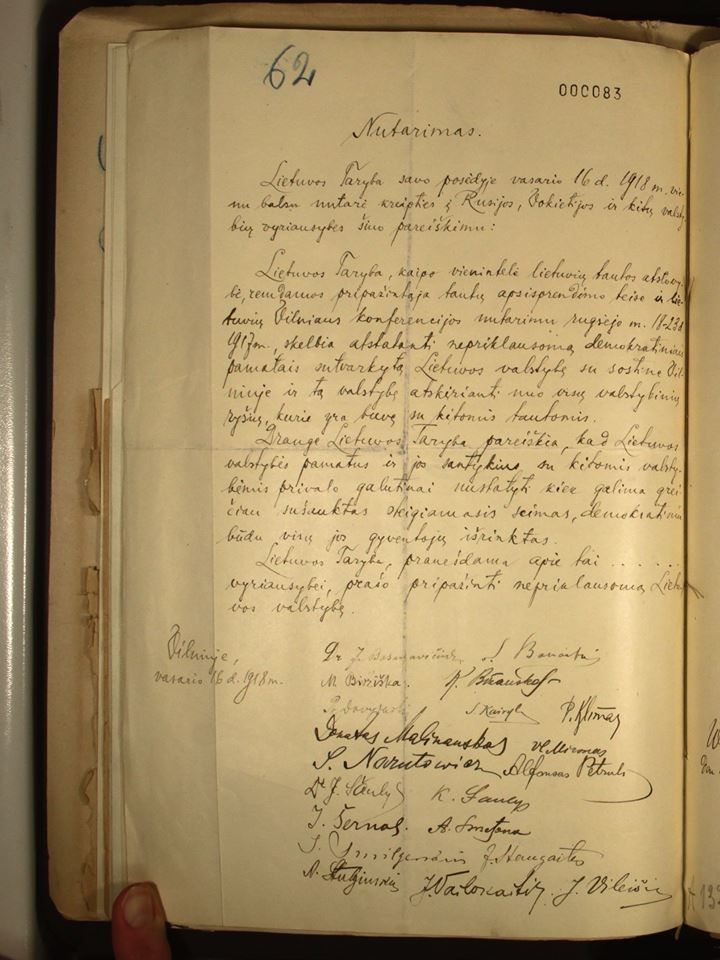 62
000083
Nutarimas.
Lietuvos Taryba savo posėdyje vasario 16 d. 1918 m. vie-
nu balsu nutarė kreipties į Rusijos, Vokietijos ir kitų valsty-
bių vyriausybes šiuo pareiškimu:
Lietuvos Taryba, kaipo vienintelė lietuvių tautos atstovy-
bė, remdamos pripažintąja tautų apsisprendimo teise ir lie-
tuvių Vilniaus konferencijos nutarimu rugsėjo m. 18-23 d.
1917 m., skelbia atstatanti nepriklausomą demokratiniais
pamatais sutvarkytą Lietuvos valstybę su sostine Vil-
niuje ir tą valstybę atskirianti nuo visų valstybinių
ryšių, kurie yra buvę su kitomis tautomis.
Drauge Lietuvos Taryba pareiškia, kad Lietuvos
valstybės pamatus ir jos santykius su kitomis valsty-
bėmis privalo galutinai nustatyti kiek galima grei-
čiau sušauktas steigiamasis seimas, demokratiniu
būdu visų jos gyventojų išrinktas.
Lietuvos Taryba, pranešdama apie tai . . . . . .
vyriausybei, prašo pripažinti nepriklausomą Lietu-
vos valstybę.
Vilniuje,
vasario 16 d. 1918 m.
Dr J. Basanavičius S. Banaitis
M. Biržiška. K. Bizauskas
P. Dovydaitis S Kairys P. Klimas
Donatas Malinauskas Vl. Mironas
S. Narutowicz Alfonsas Petrulis
Dr J. Šaulys K. Šaulys
J. Šernas. A. Smetona
J. Smilgevičius J. Staugaitis
A. Stulginskis J. Vailokaitis. J. Vileišis